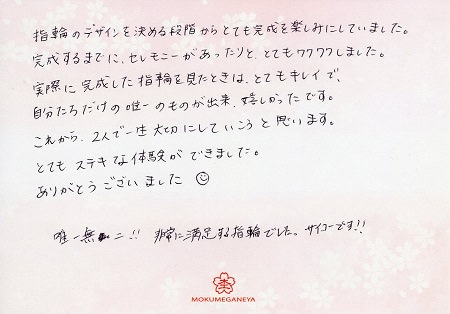 指輪のデザインを決める段階からとても完成を楽しみにしていました。
完成するまでに、セレモニーがあったりと、とてもワクワクしました。
実際に完成した指輪を見たときは、とてもキレイで、
自分たちだけの唯一のものが出来、嬉しかったです。
これから、2人で一生大切にしていこうと思います。
とてもステキな体験ができました。
ありがとうございました☺
唯一無二!! 非常に満足する指輪でした。サイコーです!!
MOKUMEGANEYA